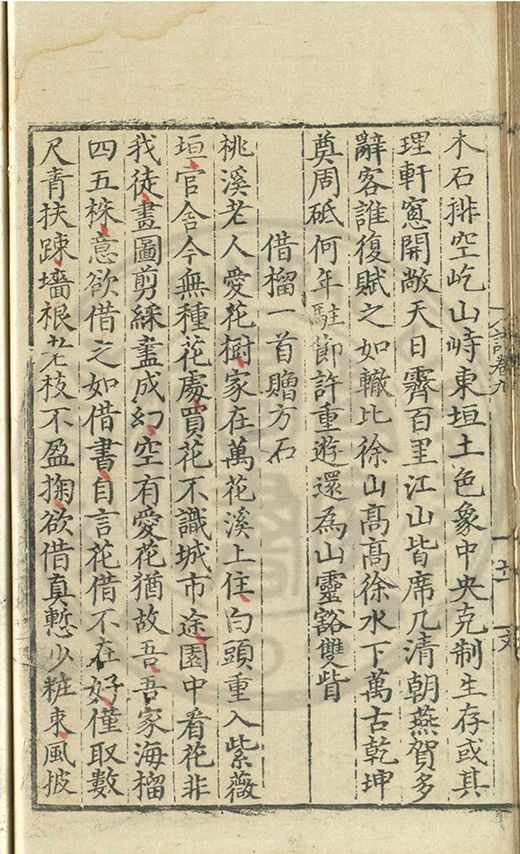 木石排空屹山峙東垣土色象中央克制生存或其
理軒窓開敞天日霽百里江山皆席几清朝燕賀多
辭客誰復賦之如轍比徐山髙髙徐水下萬古乾坤
奠周砥何年駐節許重遊還為山靈豁雙眥
借榴一首贈方石
桃溪老人愛花樹家在萬花溪上住白頭重入紫薇
垣官舍今無種花處買花不識城市途園中看花非
我徒畫圖剪綵盡成幻空有愛花猶故吾吾家海榴
四五株意欲借之如借書自言花借不在好僅取數
尺青扶踈墻根老枝不盈掬欲借真慙少粧束風披